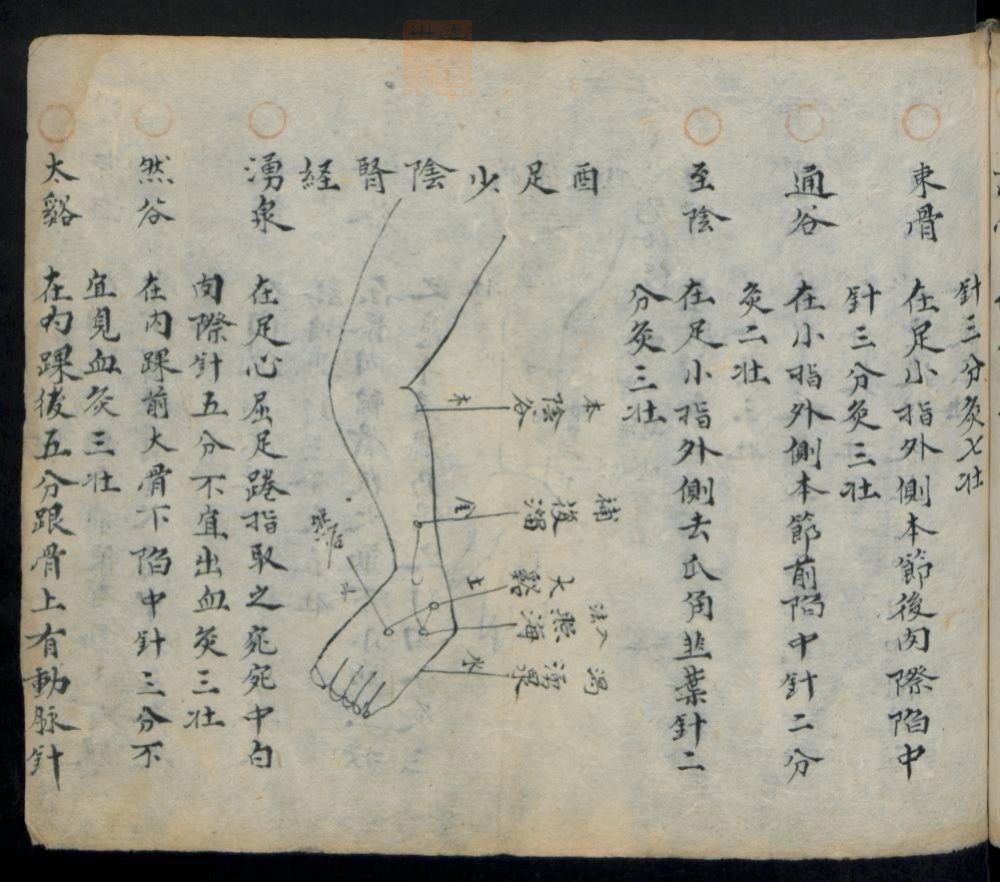 針三分灸七壯
束骨 在足小指外側本節後肉際陷中
針三分灸三壯
通谷 在小指外側本節前陷中針二分
灸二壯
至陰 在足小指外側去爪角韭葉針二
分灸三壯
酉足少陰腎経
本 陰谷 木
補 復溜 金
太谿 土
照海
瀉 湧泉 木
然谷
湧泉 在足心屈足踡指取之宛宛中白
肉際針五分不宜出血灸三壯
然谷 在內踝前大骨下陷中針三分不
宜見血灸三壯
太谿 在內踝後五分跟骨上有動脉針